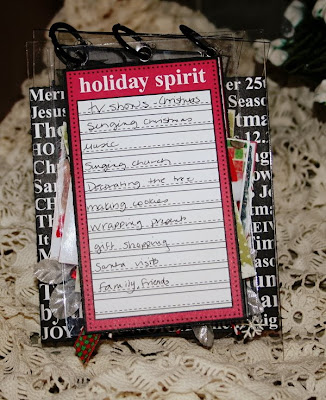 holiday spirit
tv shows - Christmas
Singing Christmas
music
Singing church
Decorating the tree
making cookies
Wrapping presents
gift shopping
Santa visits
Family, friends
Merr
Jesus
The
HO
Chris
San
CH
The
It
Me
Th
by
JOY
25t
Season
tmas
12..